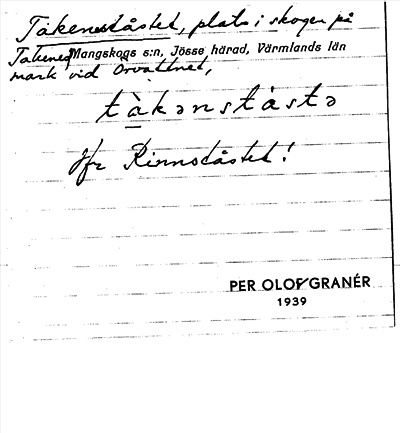 Takenståstet, plats i skogen på
Takene Mangskogs s:n, Jösse härad, Värmlands län
mark vid Örvattnet,
tàkənstàstə
Jfr Rinnståstet!
PER OLOF GRANÉR
1939